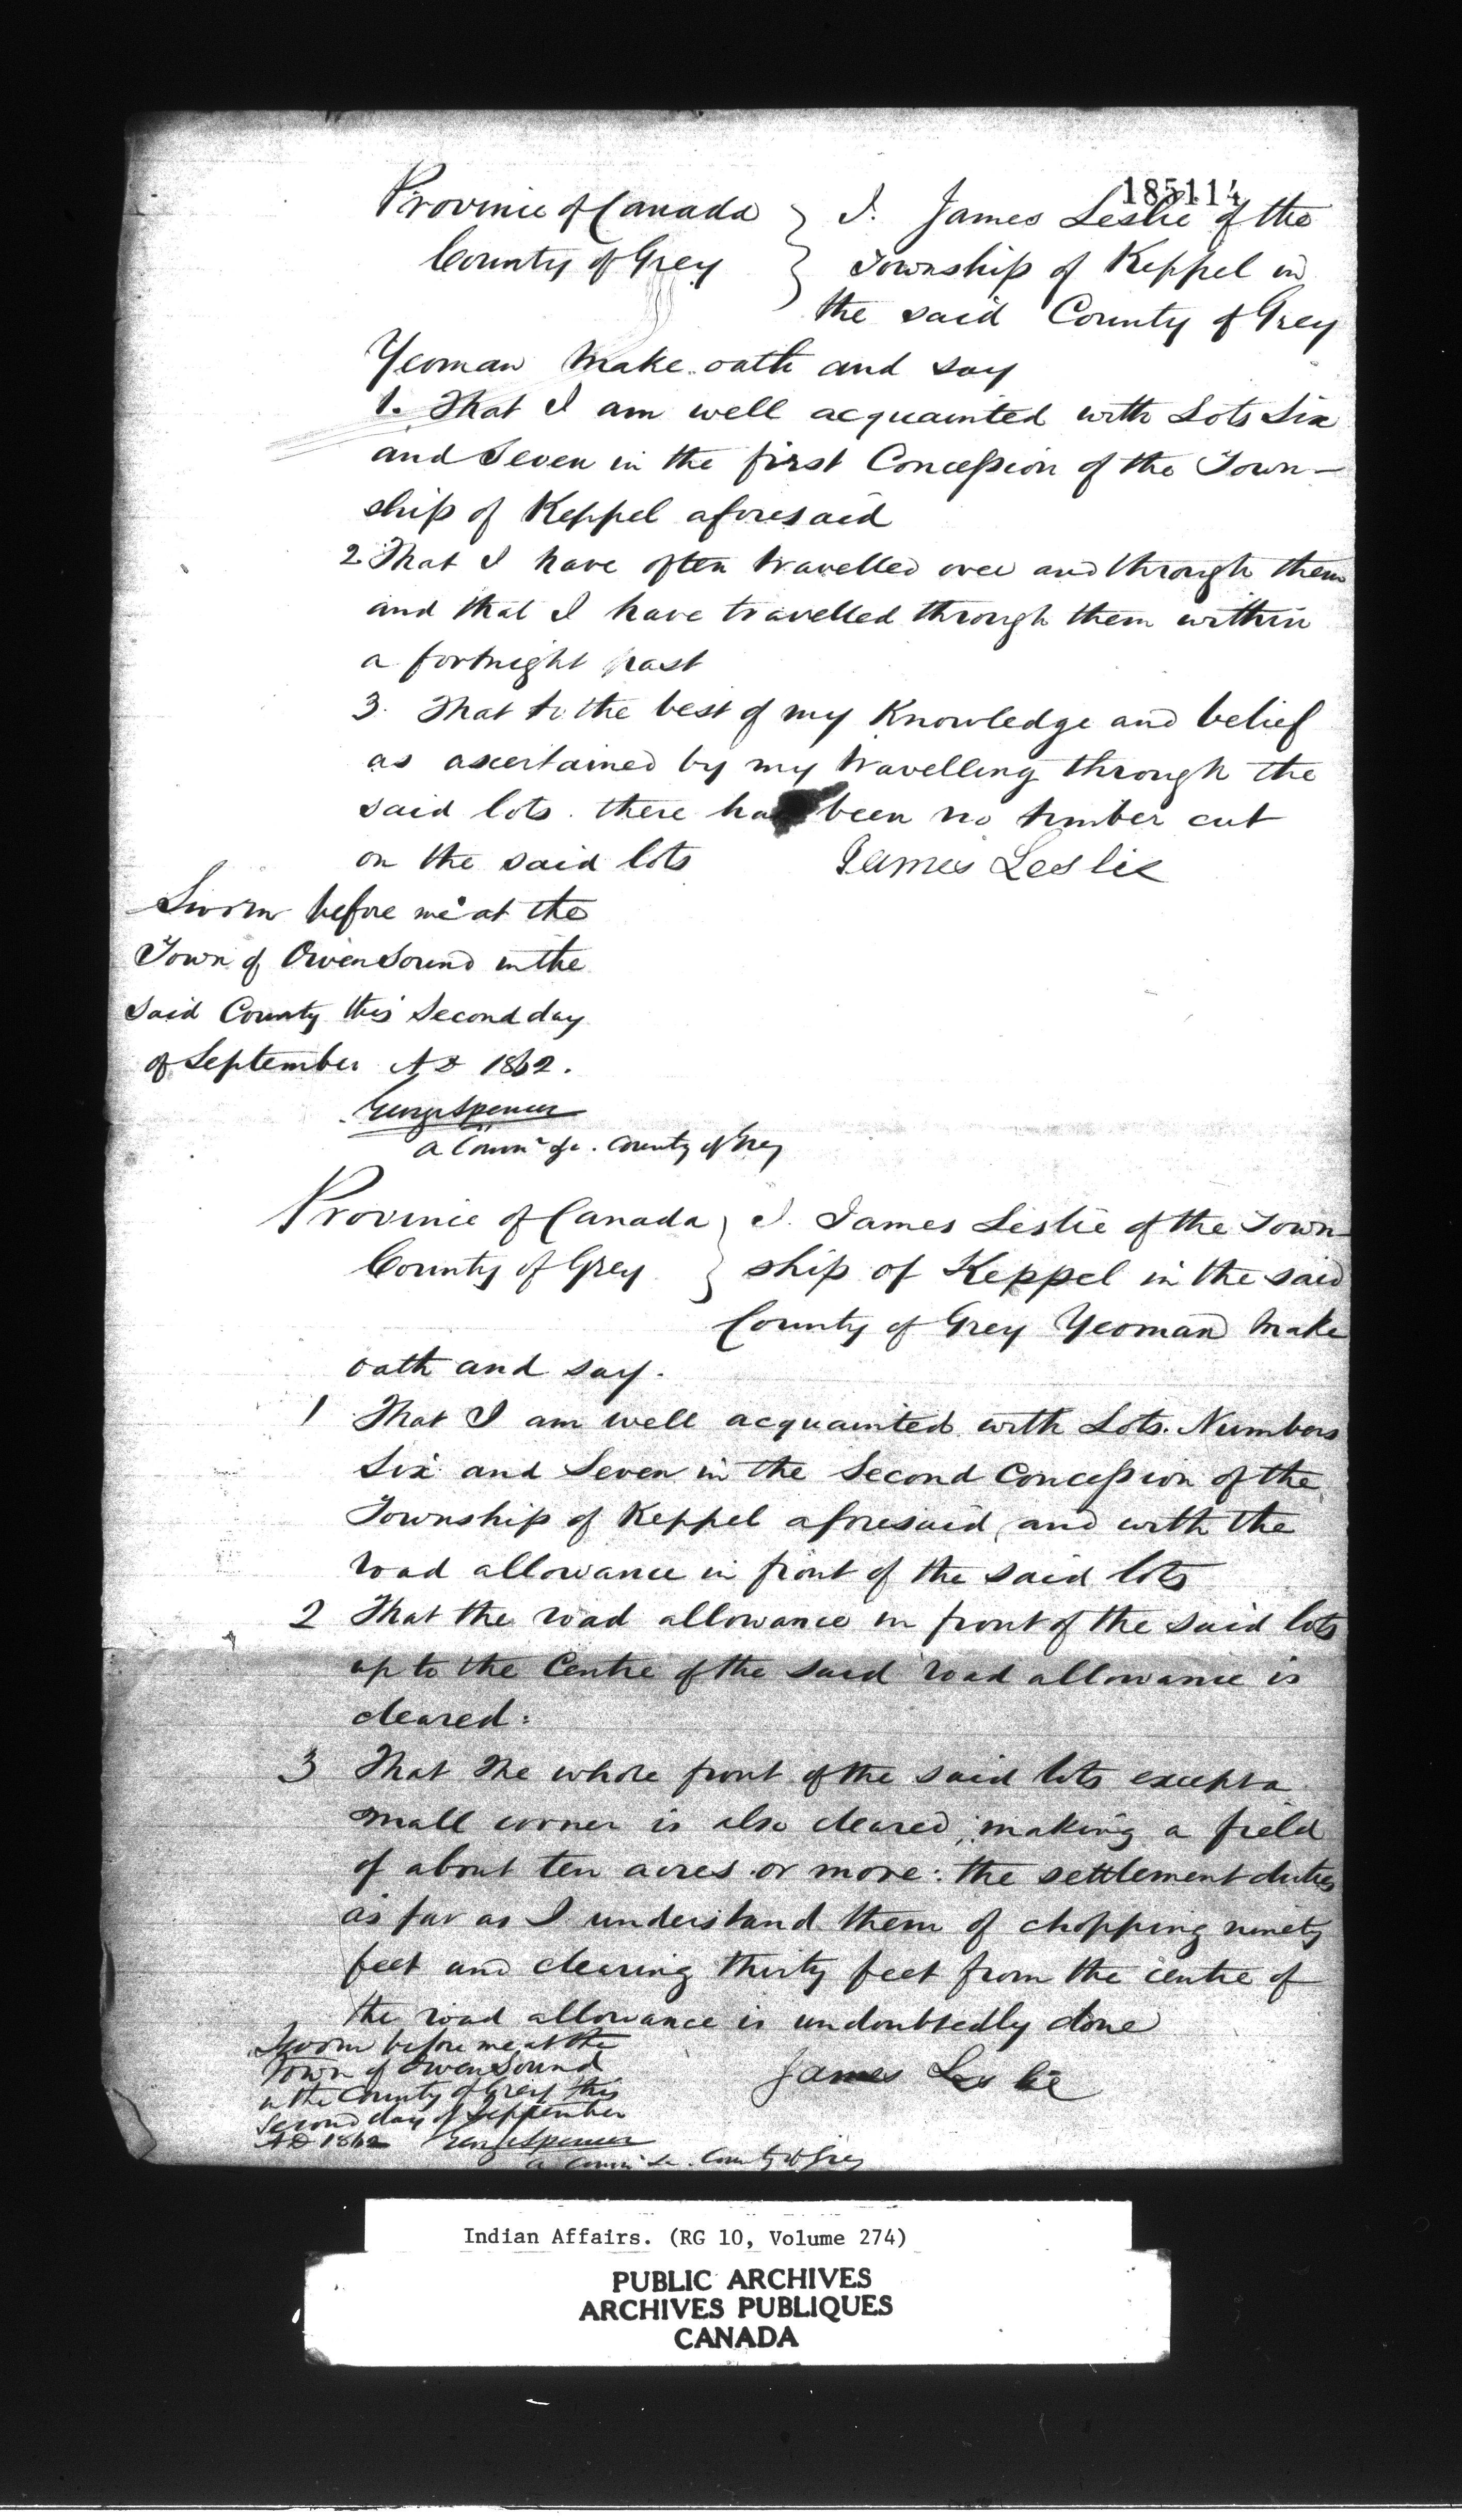 185114
Province of Canada } I. James Leslie of the
County of Grey } Township of Keppel in
the said County of Grey
Yeoman make oath and say
1. That I am well acquainted with Lots Six
and Seven in the first Concession of the Town-
ship of Keppel aforesaid
2 That I have often travelled over and through them
and that I have travelled through them within
a fortnight past
3. That to the best of my Knowledge and belief
as ascertained by my travelling through the
said lots. there has been no timber cut
on the said lots
James Leslie
Sworn before me at the
Town of Owen Sound in the
said County this Second day
of September AD 1862.
George Spencer
a Comr &c. County of Grey
Province of Canada } I. James Leslie of the Town-
County of Grey } ship of Keppel in the said
County of Grey Yeoman make
oath and say.
1 That I am well acquainted with Lots. Numbers
Six and Seven in the Second Concession of the
Township of Keppel aforesaid, and with the
road allowance in front of the said lots
2 That the road allowance in front of the said lots
up to the Centre of the said road allowance is
cleared.
3 That the whole front of the said lots except a
small corner is also cleared, making a field
of about ten acres or more: the settlement duties
as far as I understand them of chopping ninety
feet and clearing thirty feet from the centre of
the road allowance is undoubtedly done
James Leslie
Sworn before me at the
Town of Owen Sound
in the County of Grey this
second day of September
AD 1862 George Spencer
a Comr &c. County of Grey
Indian Affairs. (RG 10, Volume 274)
PUBLIC ARCHIVES
ARCHIVES PUBLIQUES
CANADA